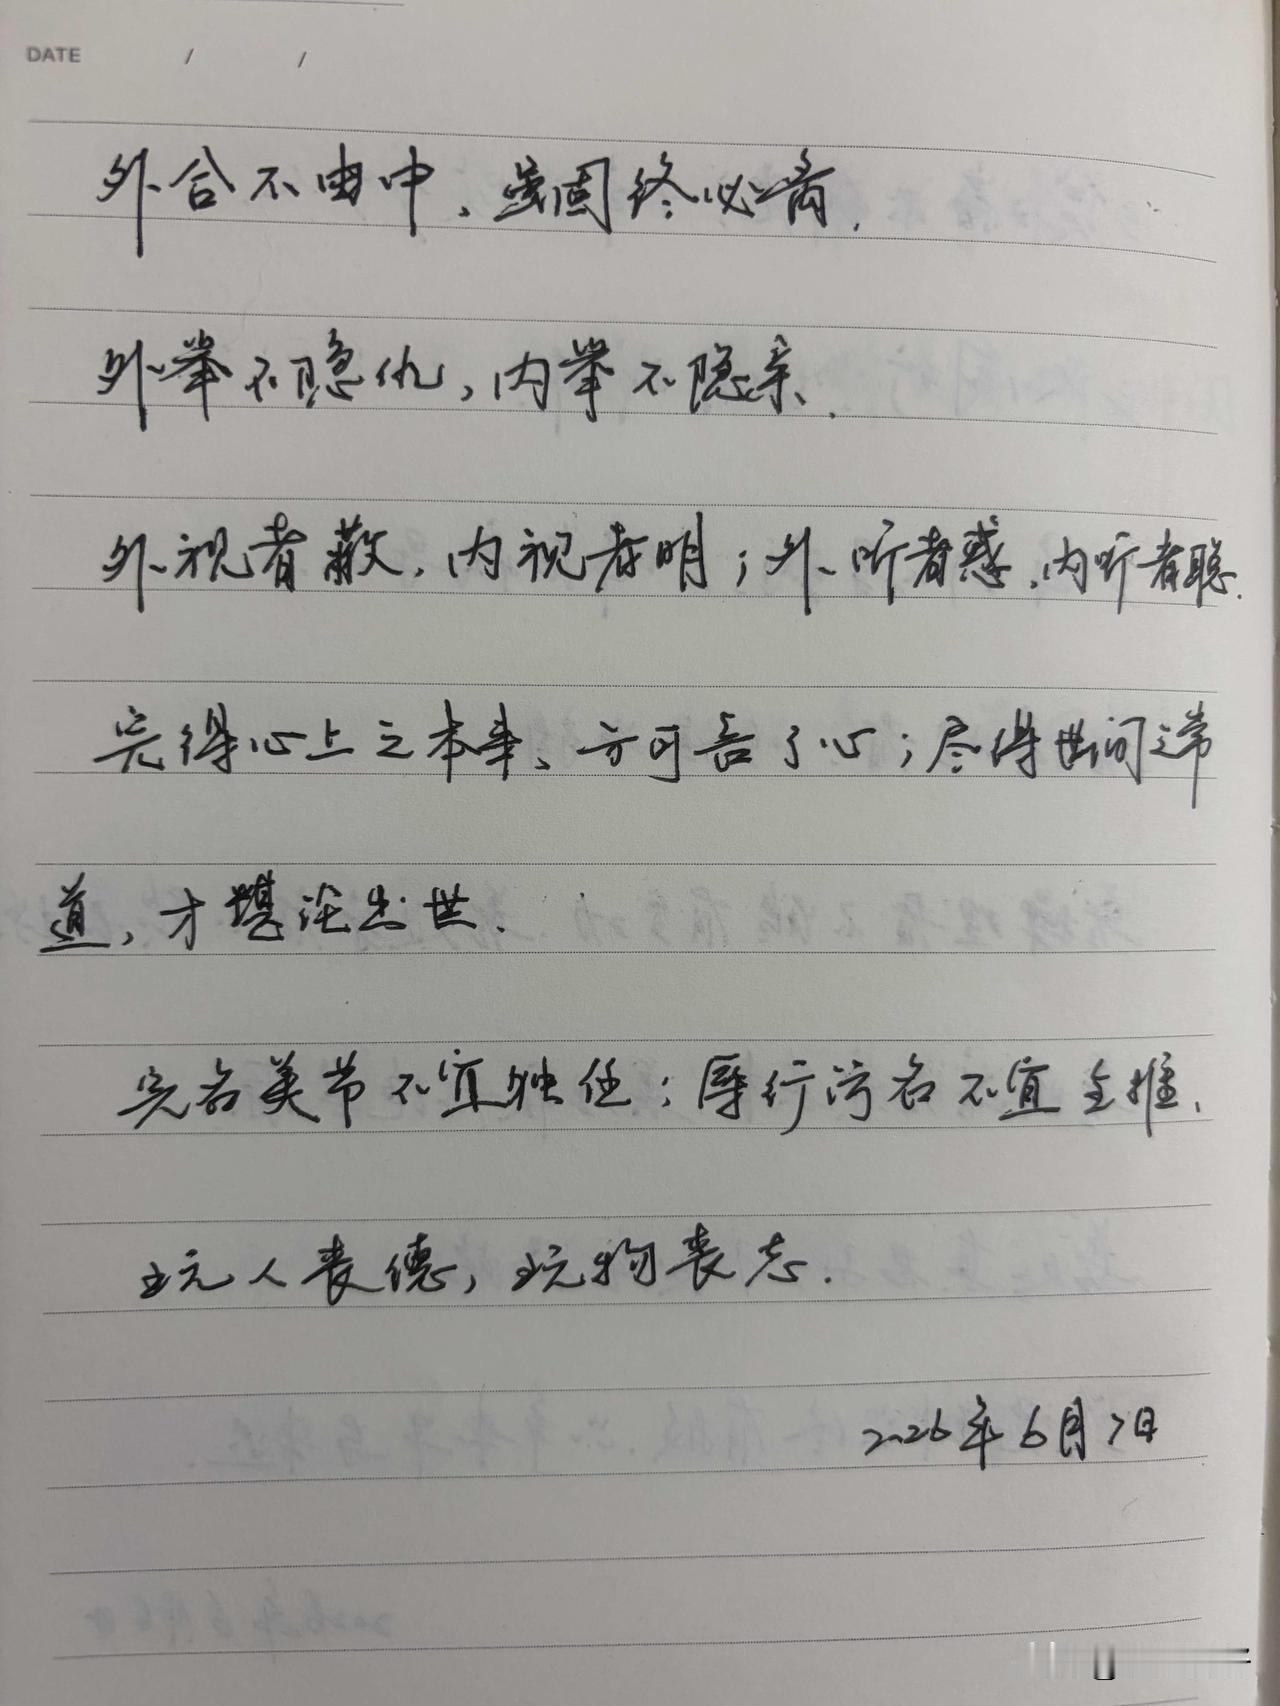 DATE / /
外合不由中、虽固终必离.
外举不隐仇,内举不隐亲.
外视者蔽,内视者明;外听者惑,内听者聪.
完得心上之本来、方可言了心;尽得世间之常
道,才堪论出世.
完名美节不宜独任;辱行污名不宜全推.
玩人丧德,玩物丧志.
2026年6月7日